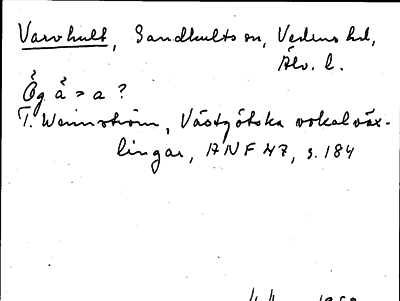 Varvhult, Sandhults sn, Vedens hd,
Älv. l.
Ög å > a ?
T. Wennström, Västgötska vokalväx-
lingar, ANF 47, s. 184